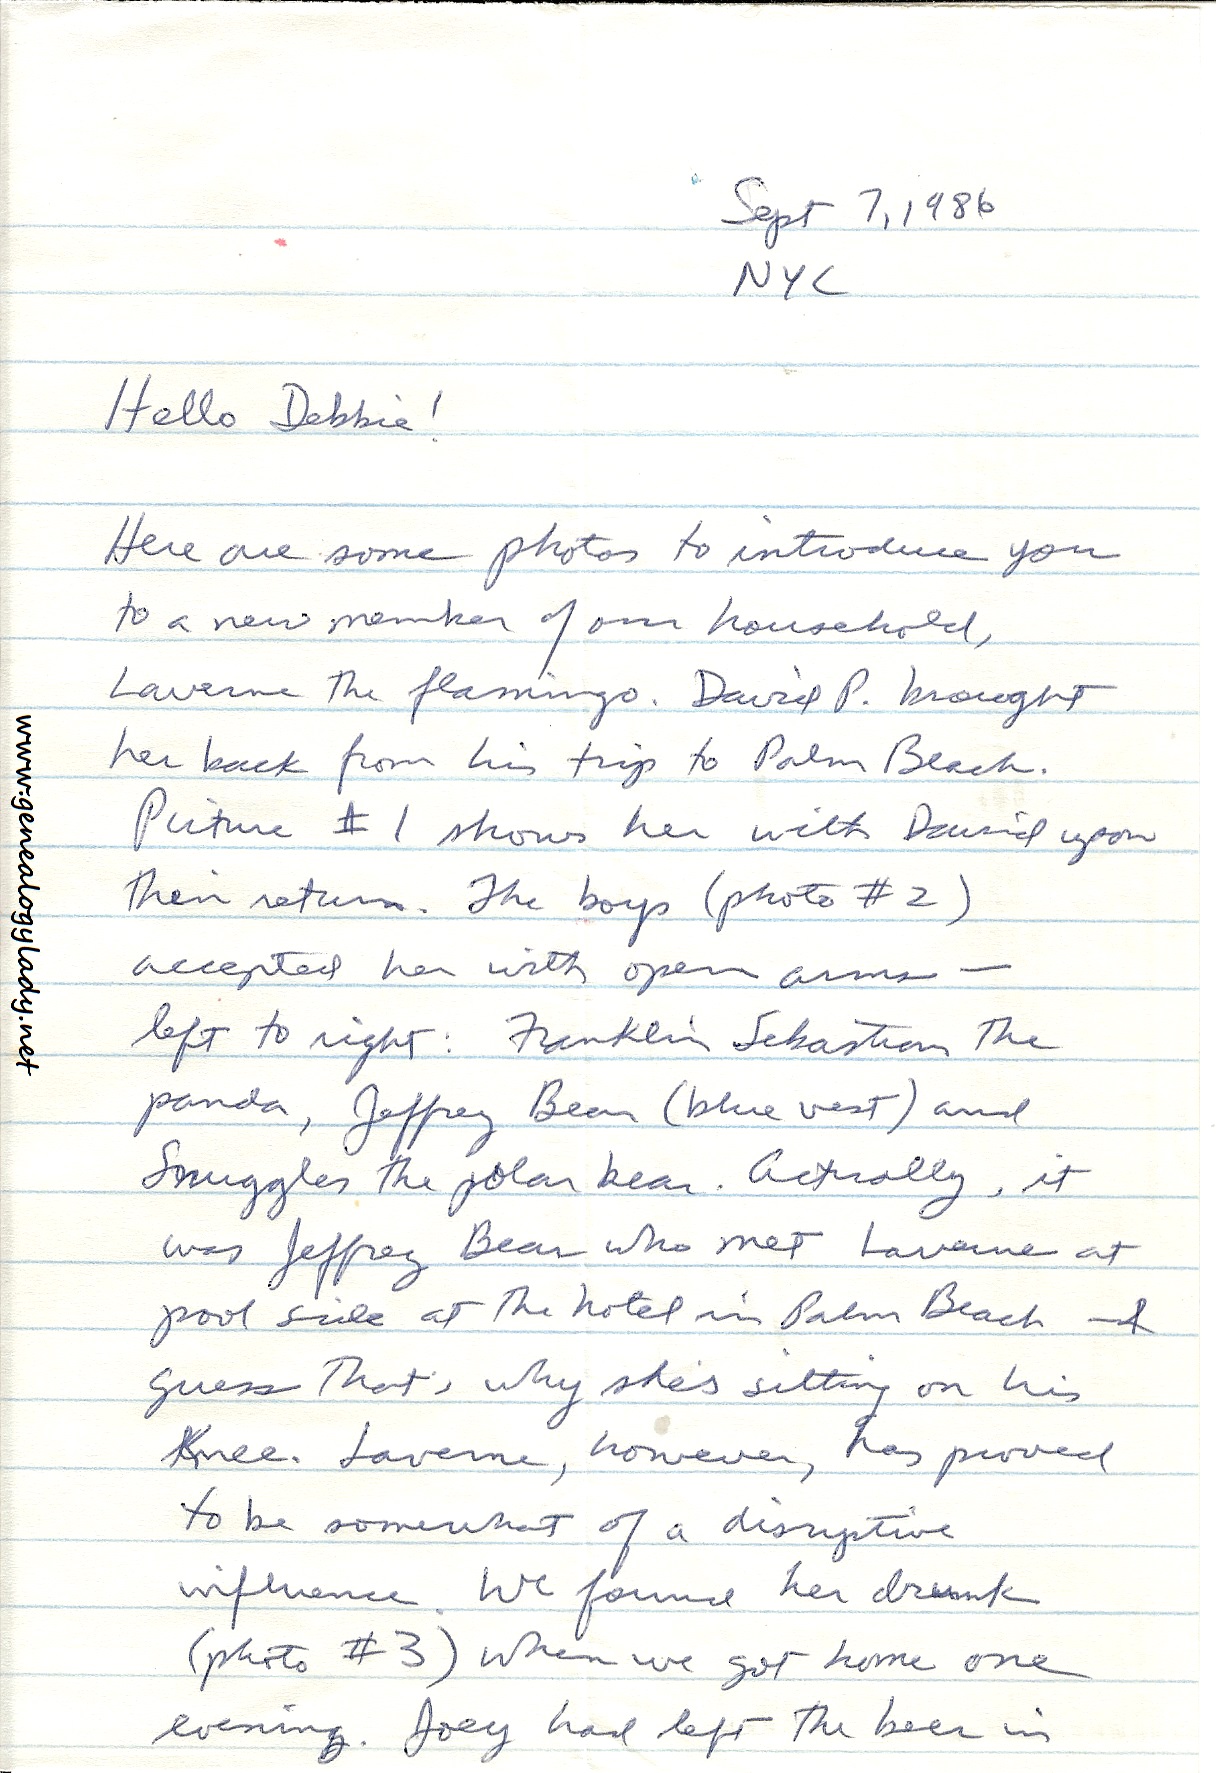 Sept 7, 1986
NYC
Hello Debbie!
Here are some photos to introduce you
to a new member of our household,
Laverne the flamingo. David P. brought
her back from his trip to Palm Beach.
Picture #1 shows her with David upon
their return. The boys (photo #2)
accepted her with open arms —
left to right: Franklin Sebastian the
panda, Jeffrey Bear (blue vest) and
Snuggles the polar bear. Actually, it
was Jeffrey Bear who met Laverne at
pool side at the hotel in Palm Beach — I
guess that's why she's sitting on his
Knee. Laverne, however, has proved
to be somewhat of a disruptive
influence. We found her drunk
(photo #3) when we got home one
evening. Joey had left the beer in
www.genealogylady.net